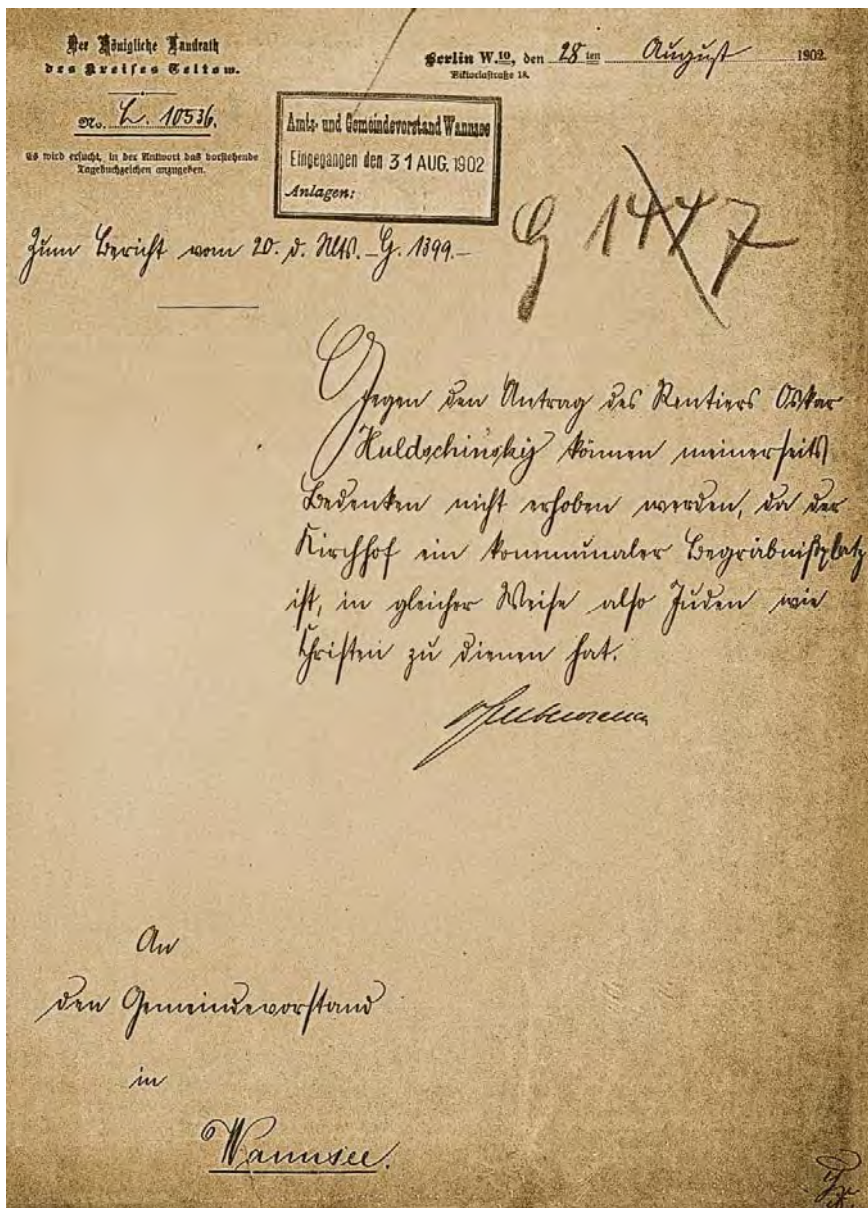 Der Königliche Landrath
des Kreises Teltow.
No. L. 10536.
Es wird ersucht, in der Antwort das vorstehende
Tagebuchzeichen anzugeben.
Berlin W.10, den 28ten August 1902.
Viktoriastraße 18.
Amts- und Gemeindevorstand Wannsee
Eingegangen den 31 AUG. 1902
Anlagen:
G 1447
Zum Bericht vom 20. d. Mts. – G. 1399. –
Gegen den Antrag des Rentiers Oskar
Huldschinsky können meinerseits
Bedenken nicht erhoben werden, da der
Kirchhof ein kommunaler Begräbnißplatz
ist, in gleicher Weise also Juden wie
Christen zu dienen hat.
An
den Gemeindevorstand
in
Wannsee.